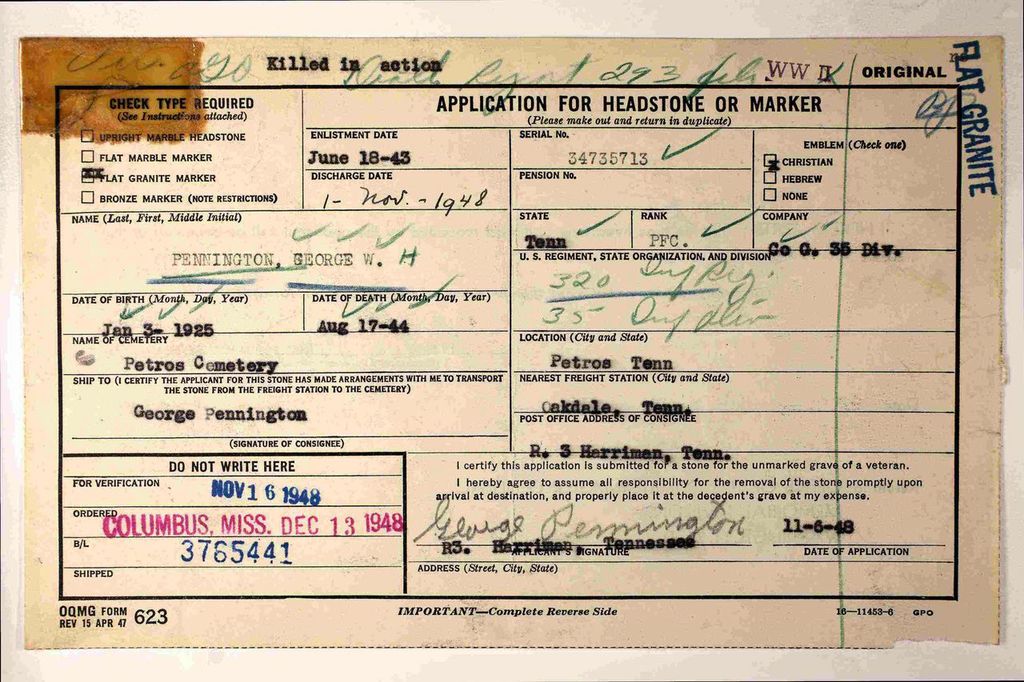 Killed in action
Death Report 293 file WW II ORIGINAL
FLAT GRANITE
CHECK TYPE REQUIRED
(See Instructions attached)
UPRIGHT MARBLE HEADSTONE
FLAT MARBLE MARKER
XX FLAT GRANITE MARKER
BRONZE MARKER (NOTE RESTRICTIONS)
APPLICATION FOR HEADSTONE OR MARKER
(Please make out and return in duplicate)
ENLISTMENT DATE
June 18-43
DISCHARGE DATE
1- Nov. - 1948
SERIAL No.
34735713
PENSION No.
EMBLEM (Check one)
X CHRISTIAN
HEBREW
NONE
NAME (Last, First, Middle Initial)
PENNINGTON, GEORGE W. H
STATE
Tenn
RANK
PFC.
COMPANY
Co G. 35 Div.
U. S. REGIMENT, STATE ORGANIZATION, AND DIVISION
320 Inf Reg.
35 Inf Div
DATE OF BIRTH (Month, Day, Year)
Jan 3- 1925
DATE OF DEATH (Month, Day, Year)
Aug 17-44
NAME OF CEMETERY
Petros Cemetery
LOCATION (City and State)
Petros Tenn
SHIP TO (I CERTIFY THE APPLICANT FOR THIS STONE HAS MADE ARRANGEMENTS WITH ME TO TRANSPORT
THE STONE FROM THE FREIGHT STATION TO THE CEMETERY)
George Pennington
(SIGNATURE OF CONSIGNEE)
NEAREST FREIGHT STATION (City and State)
Oakdale, Tenn.
POST OFFICE ADDRESS OF CONSIGNEE
R. 3 Harriman, Tenn.
DO NOT WRITE HERE
FOR VERIFICATION
NOV 16 1948
ORDERED
COLUMBUS, MISS. DEC 13 1948
B/L
3765441
SHIPPED
I certify this application is submitted for a stone for the unmarked grave of a veteran.
I hereby agree to assume all responsibility for the removal of the stone promptly upon
arrival at destination, and properly place it at the decedent's grave at my expense.
George Pennington 11-6-48
R3. Harriman, Tennessee
APPLICANT'S SIGNATURE DATE OF APPLICATION
ADDRESS (Street, City, State)
OQMG FORM
REV 15 APR 47 623
IMPORTANT—Complete Reverse Side
16—11453-6 GPO